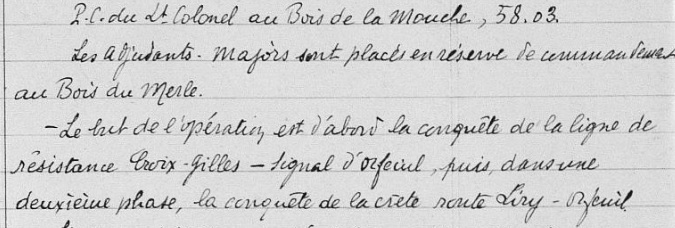 P.C. du Lt Colonel au Bois de la Mouche, 58.03.
Les Adjudants-Majors sont placés en réserve de commandement
au Bois du Merle.
- Le but de l'opération est d'abord la conquête de la ligne de
résistance Croix-Gilles - Signal d'Orfeuil, puis, dans une
deuxième phase, la conquête de la crête route Liry - Orfeuil.